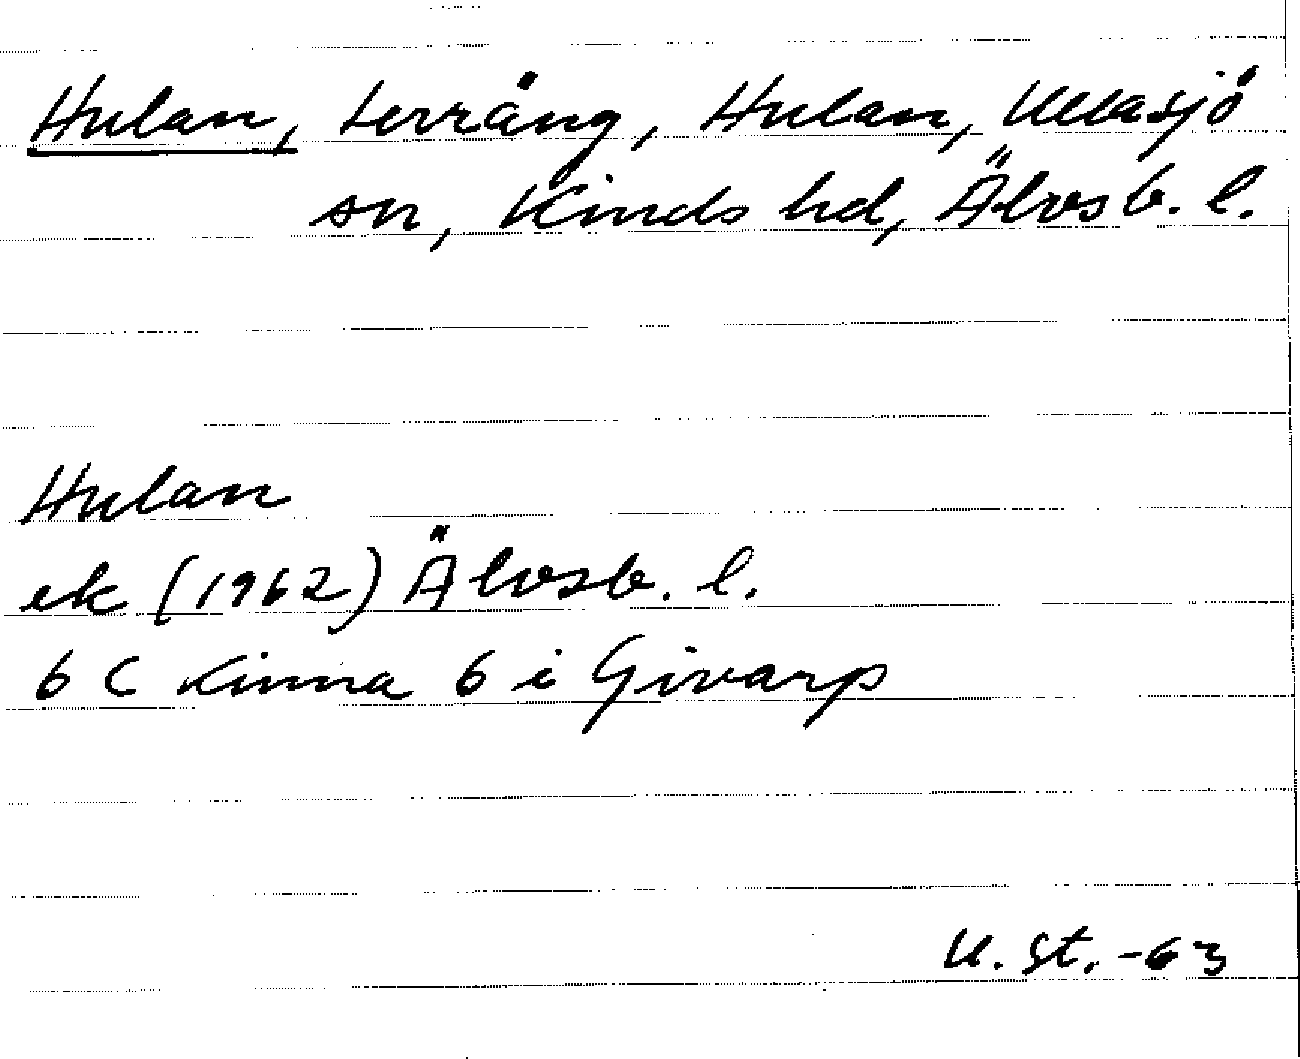 Hulan, terräng, Hulan, Ullasjö
sn, Kinds hd, Älvsb. l.
Hulan
ek (1962) Älvsb. l.
6 C Kinna 6 i Givarp
U. St. -63